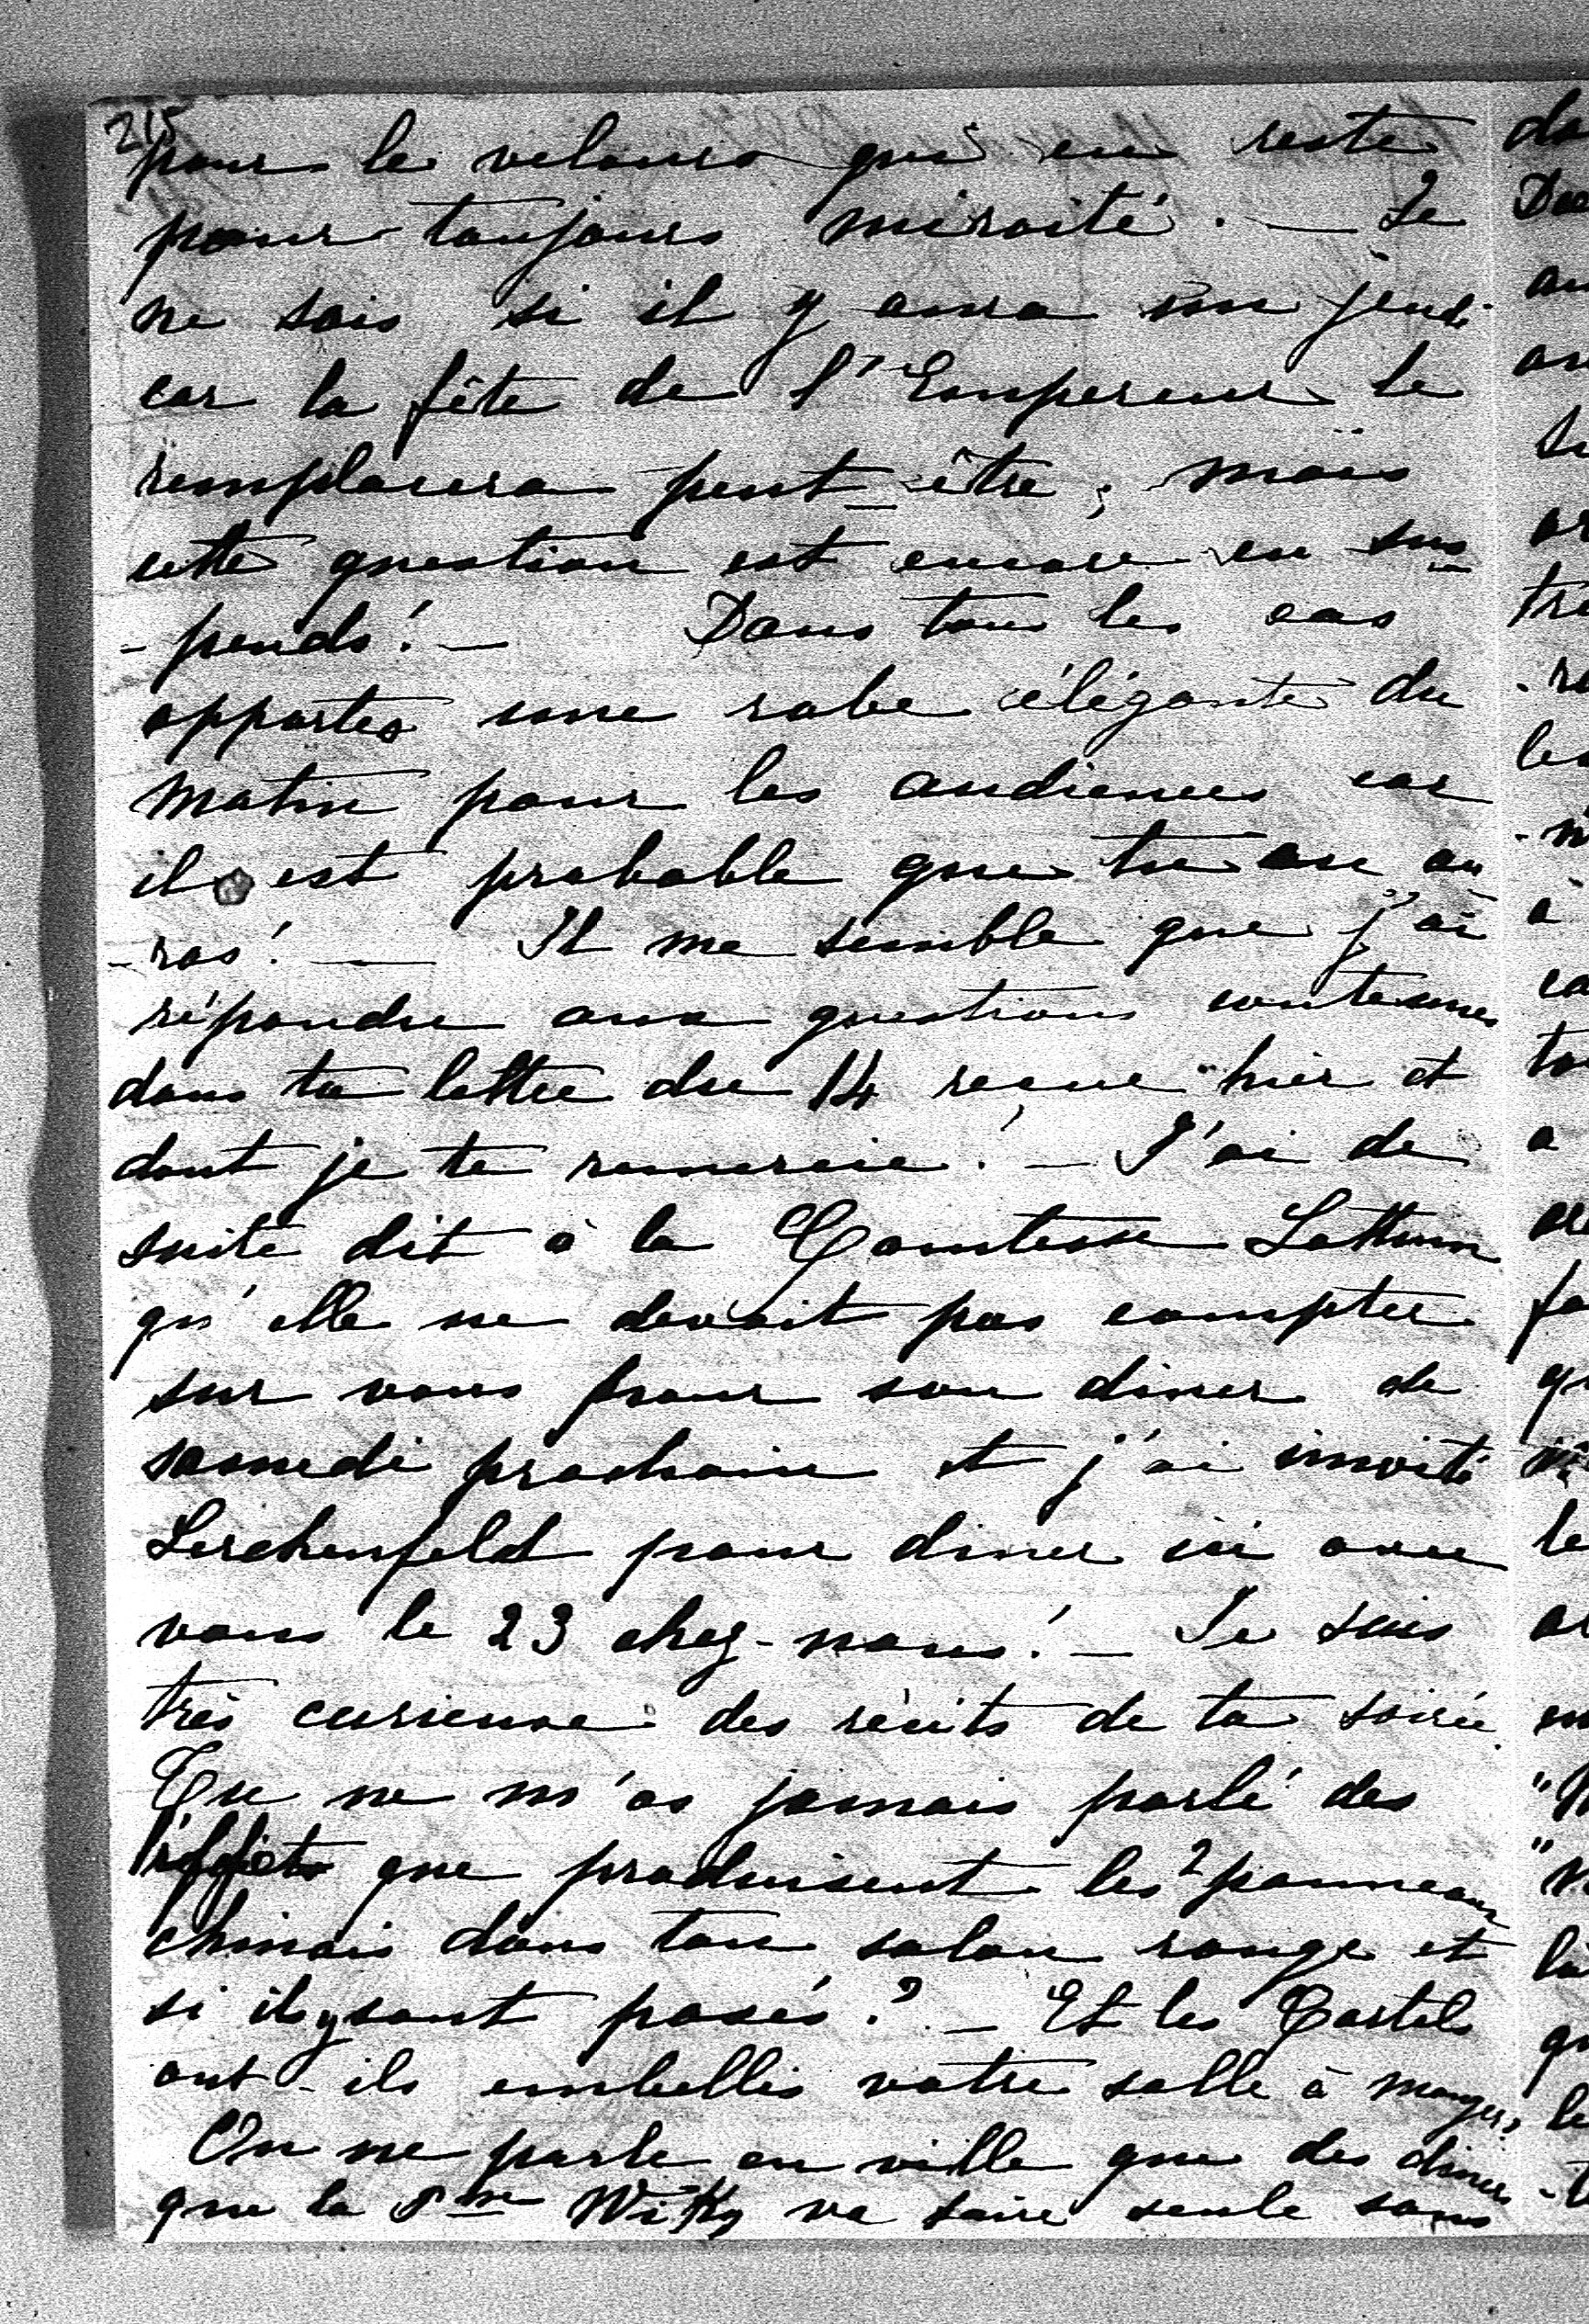 215
pour le velours qui en reste
pour toujours miroité. — Je
ne sais si il y aura un jeudi
car la fête de l'Empereur le
remplacera peut-être, mais
cette question est encore en sus
-pends! — Dans tous les cas
apportes une robe élégante du
matin pour les audiences car
il est probable que tu en au
-ras! — Il me semble que j'ai
répondu aux questions contenues
dans ta lettre du 14 reçue hier et
dont je te remercie! — J'ai de
suite dit à la Comtesse Lottum
qu'elle ne devait pas compter
sur vous pour son diner de
samedi prochain et j'ai invité
Lerchenfeld pour diner ici avec
vous le 23 chez-nous! — Je suis
très curieuse des récits de ta soirée.
Tu ne m'as jamais parlé des
que produisent les 2 panneaux
chinois dans ton salon rouge et
si ils y sont posés? — Et les Castels
ont-ils embellis votre salle à manger?
On ne parle en ville que des diners
que la Pm va faire seule sans